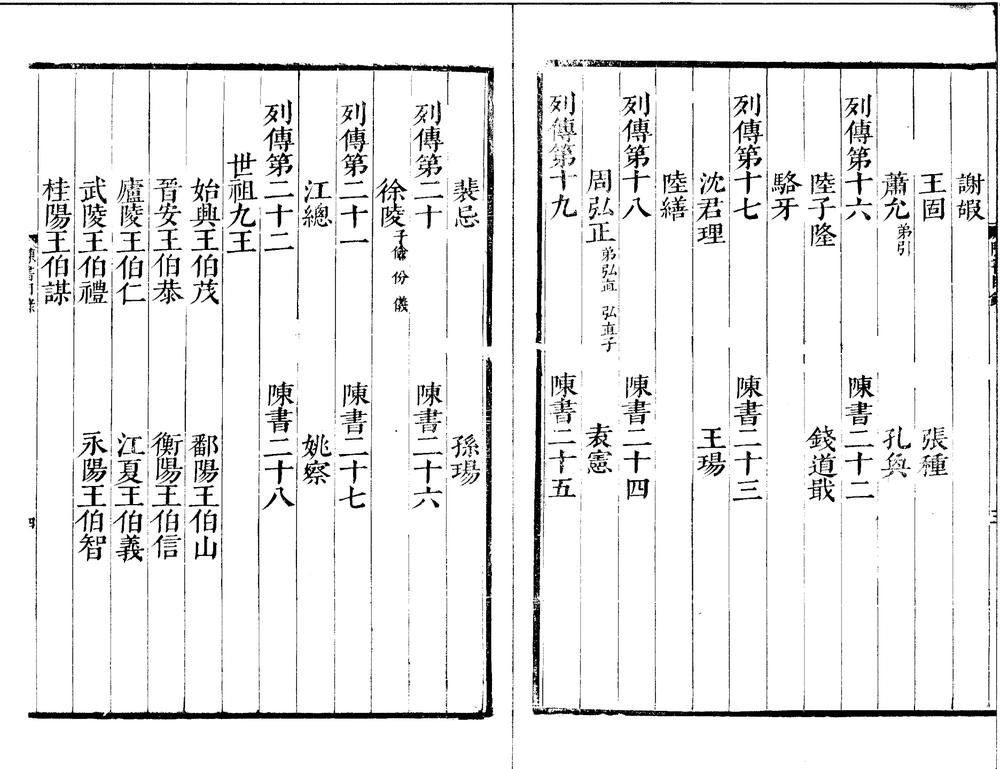 謝嘏
王固 張種
蕭允弟引 孔奐
列傳第十六 陳書二十二
陸子隆 錢道戢
駱牙
列傳第十七 陳書二十三
沈君理 王瑒
陸繕
列傳第十八 陳書二十四
周弘正弟弘直 弘直子 袁憲
列傳第十九 陳書二十五
裴忌 孫瑒
列傳第二十 陳書二十六
徐陵子儉 份 儀
列傳第二十一 陳書二十七
江總 姚察
列傳第二十二 陳書二十八
世祖九王
始興王伯茂 鄱陽王伯山
晉安王伯恭 衡陽王伯信
廬陵王伯仁 江夏王伯義
武陵王伯禮 永陽王伯智
桂陽王伯謀
陳書目錄 四